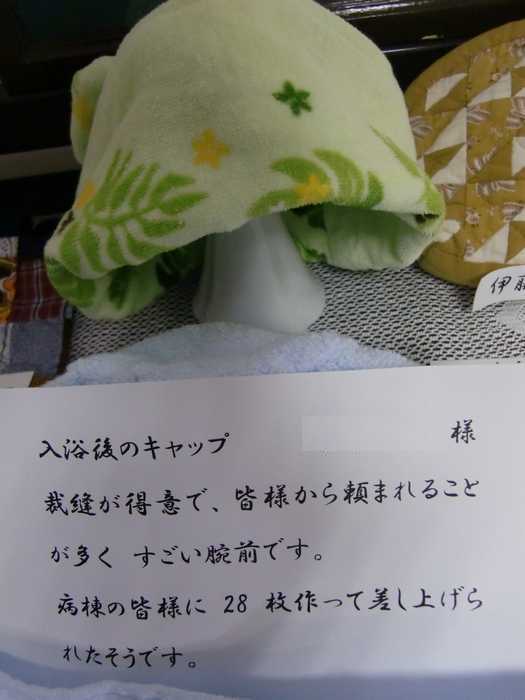 伊
入浴後のキャップ 様
裁縫が得意で、皆様から頼まれること
が多く すごい腕前です。
病棟の皆様に 28 枚作って差し上げら
れたそうです。